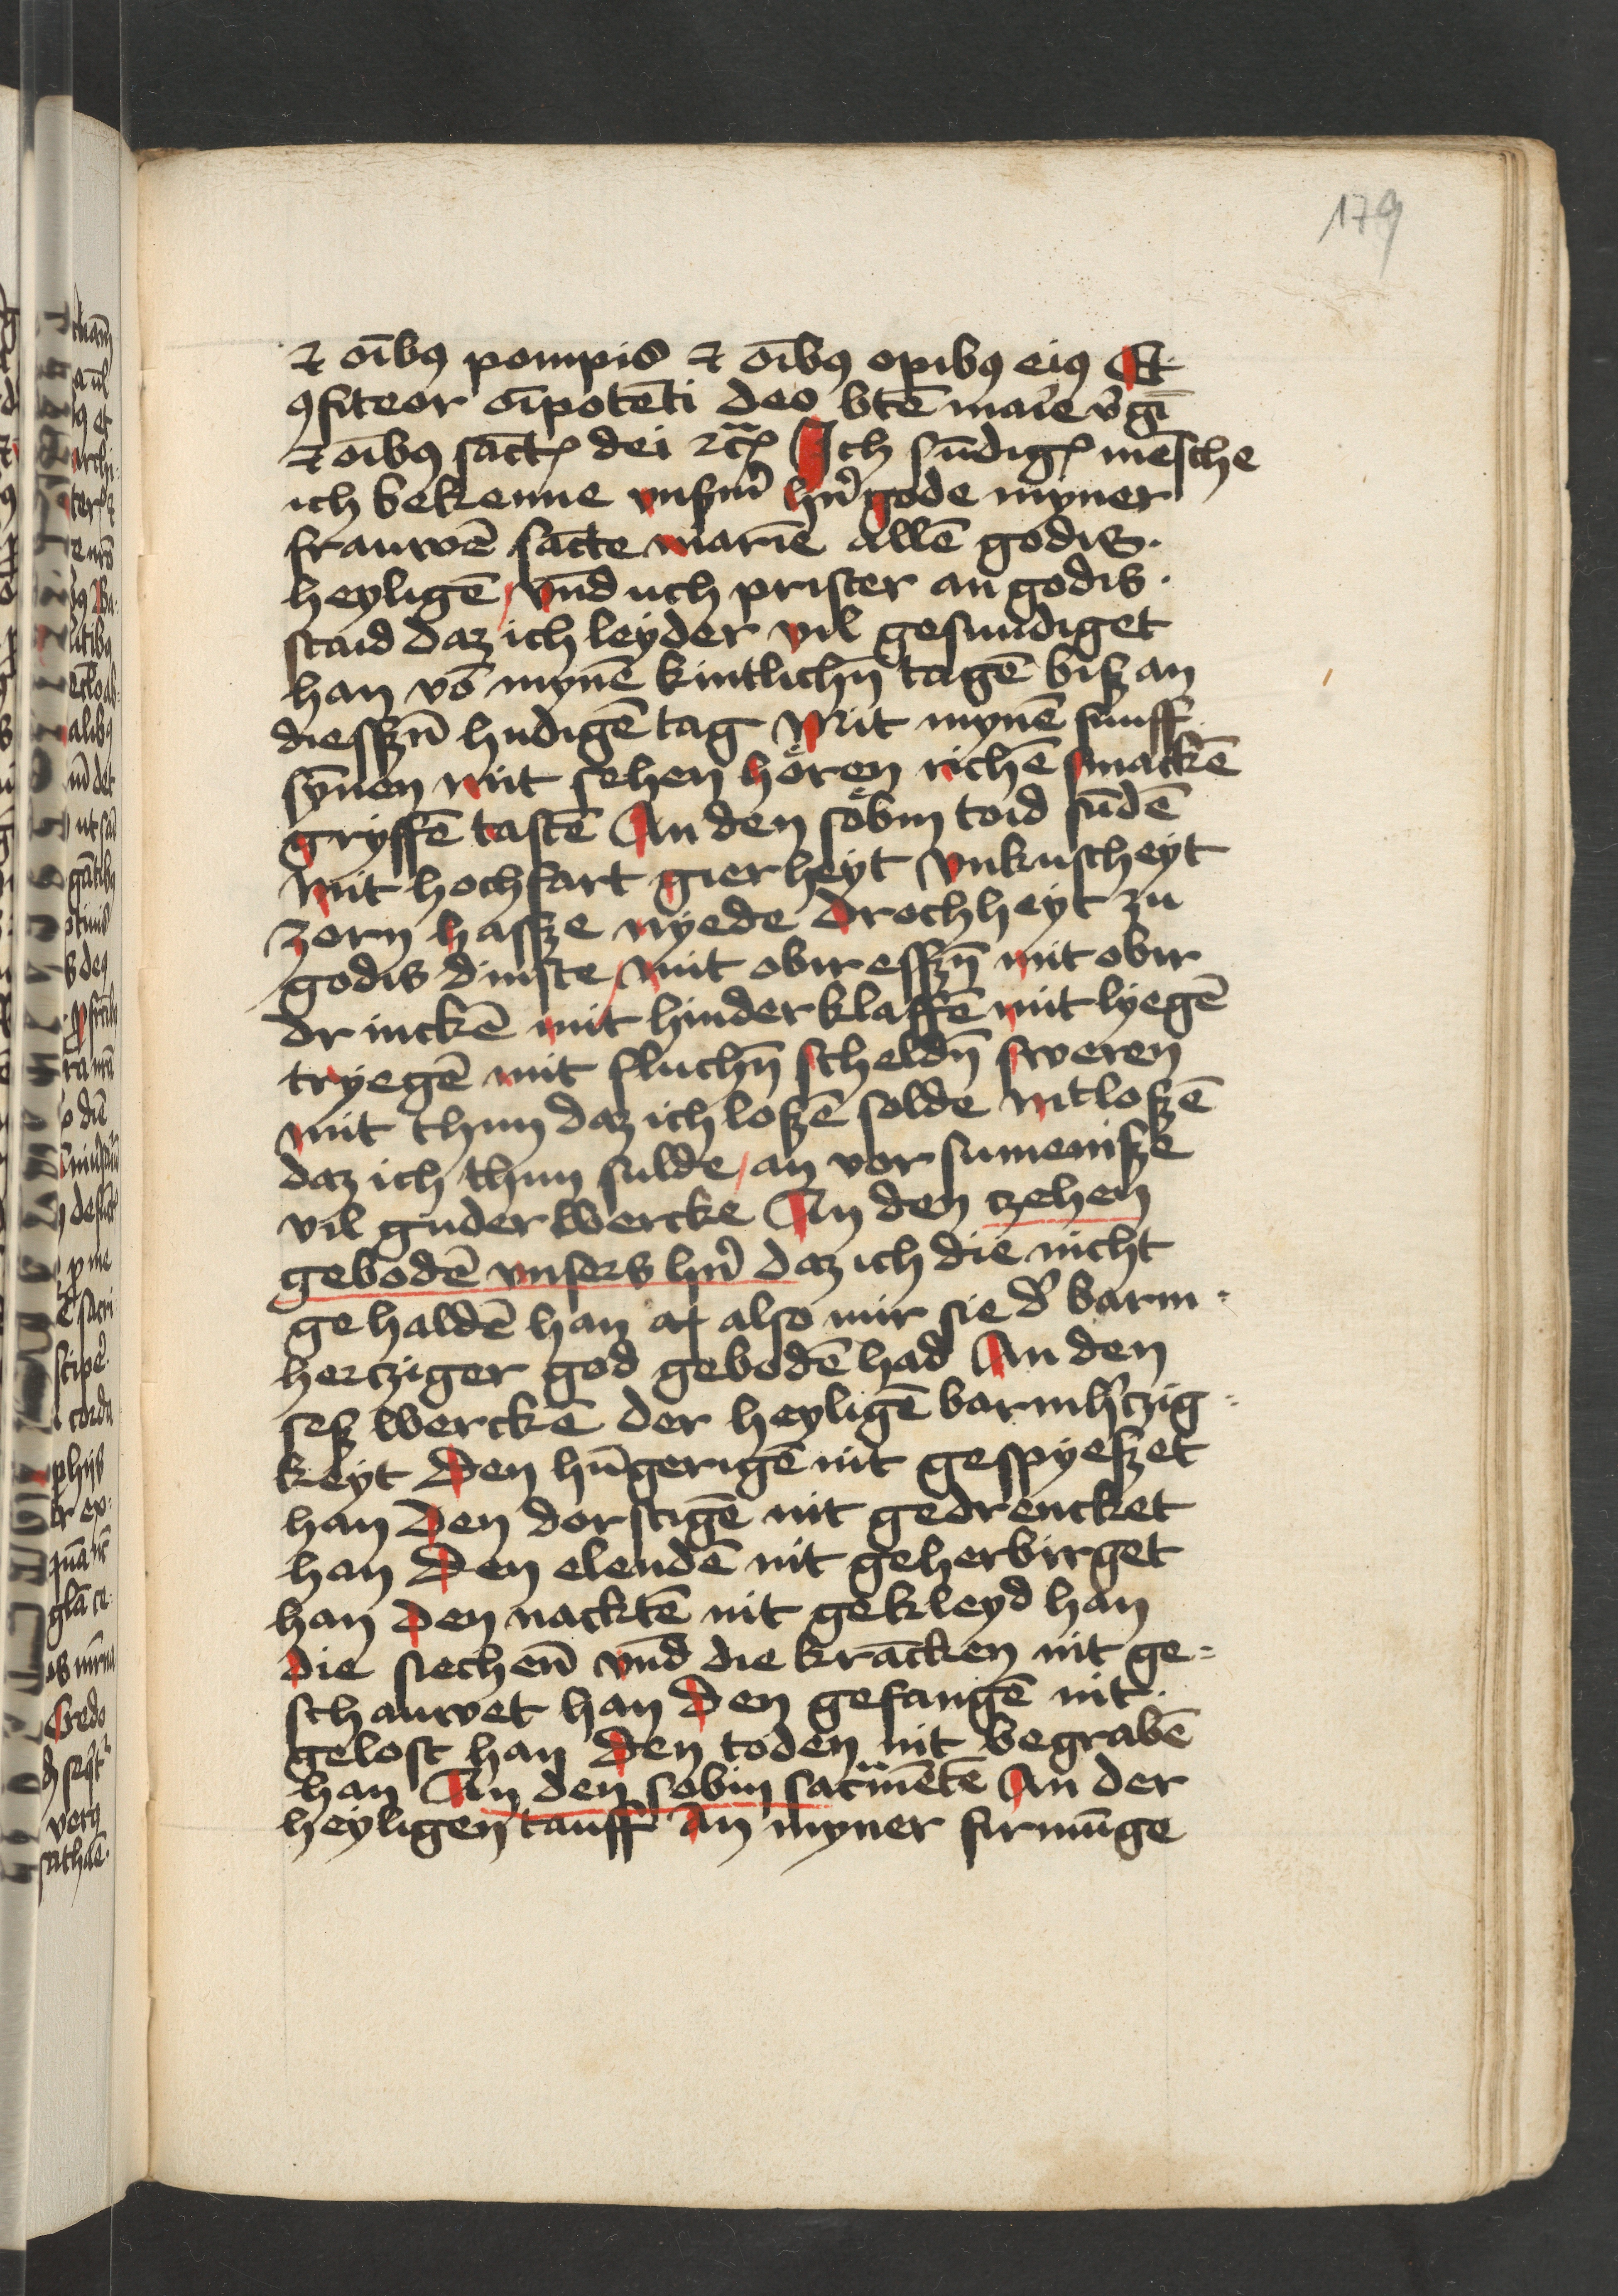 179
⁊ oı̄bꝰ pompis ⁊ oı̄bꝰ opibꝰ eiꝰ Et
ꝯfiteor oı̄potēti deo btē maı̄e v̄gı̄
⁊ oı̄bꝰ sāctꝭ dei ⁊c̄ꝭ Ich sūdigꝭ mēsche
ich bekenne vnßm̄ hn̄ gode myner
frauwē sācte marıe allē godis.
heyligē vn̄d uch prister an godis.
staid daz ich leyder vil gesundiget
han vō mynē kintlichn̄ tagē biß an
diesßn̄ hudigē tag Mit mynē funff
sȳnen mit sehen hören richē smackē
gryffē tastē An den söbin toid sūdē
Mit hochfart gierheyt vnkuscheyt
zorn hasße nyede drochheyt zu
godis dinste mit obir esßn̄ mit obir
drinckē mit hinder klaffē mit lyegē
tryegē mit fluchn̄ scheldn̄ sweren
mit thun daz ich loßē solde Mit loßē
daz ich thun sulde an vor sumeniße
vil guder wercke An den czehen
gebodē vnsers hn̄ daz ich die nicht
gehaldē han also mir sie d̄ barm⸗
hercziger god gebodē had An den
seß werckē der heyligē barmh̄czig⸗
keyt Den hūgerigē nit gespyeßet
han Den dorstigē nit gedrencket
han Den elendē nit geherbirget
han Den nacktē nit gekleyd han
Die siechen̄ vn̄d die krācken nit ge⸗
schauwet han Den gefangē nit
gelost han Den toden nit begrabē
han An den sobin sacr̄mētē An der
heyligen tauff An myner firmūge